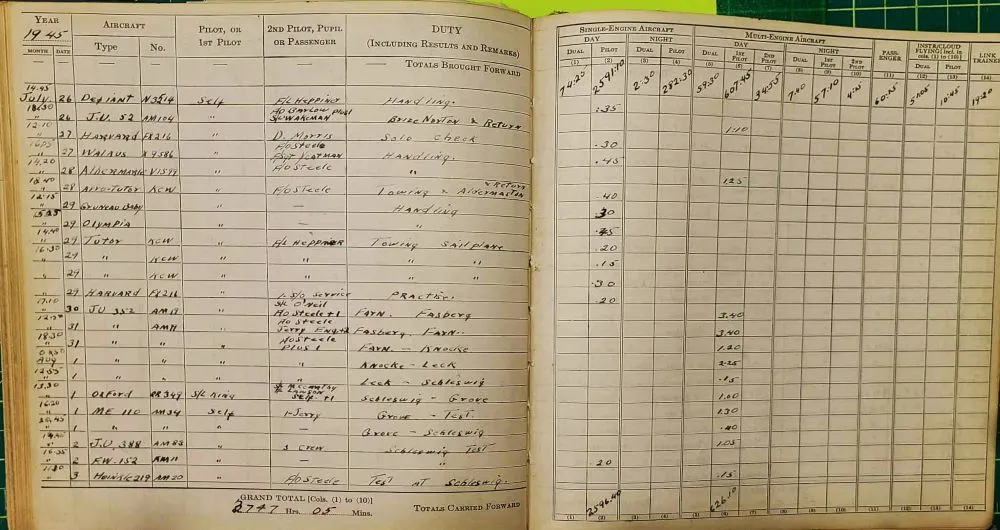 YEAR AIRCRAFT PILOT, OR 1ST PILOT 2ND PILOT, PUPIL OR PASSENGER DUTY (INCLUDING RESULTS AND REMARKS)
1945 Type No.
MONTH DATE
— — — — — TOTALS BROUGHT FORWARD
14.45
July 26 Defiant N3214 Self F/L Heppner Handling.
18.30 F/O Barlow plus 1
" 26 J.U. 52 AM104 " S/L Wakeman Brize Norton & Return
12.10
" 27 Harvard FX216 " D. Morris Solo Check
16.05 F/O Steele
" 27 Walrus X9586 " Veatman Handling.
14.20
" 28 Albermarle V1599 " F/O Steele "
18.40 & Return
" 28 Avro-Tutor KCW " F/O Steele Towing & Aldermaston
12.15
" 29 Gruneau Baby " — Handling
" 29 Olympia " — "
14.40
" 29 Tutor KCW " F/L Heppner Towing Sailplane
16.30
" 29 " KCW " " " "
" 29 " KCW " " " "
" 29 Harvard FX216 " Practise.
17.10 S/L O'Neil
" 30 JU 352 AM19 " F/O Steele+1 Farn. Fasberg
F/O Steele
" 31 " AM19 " Jerry Eng+2 Fasberg. Farn.
18.30 F/O Steele
" 31 " " Plus 1 Farn – Knocke
Aug 1 " " " Knocke - Leck
12.55
" 1 " " " Leck – Schleswig
13.30 McCarthy
" 1 Oxford S/L King Self +1 Schleswig – Grove
16.20
" 1 ME 110 AM34 Self 1-Jerry Grove – Test.
" 1 " " " — Grove – Schleswig
" 2 J.U. 388 AM83 " 3 crew Schleswig Test
16.35
" 2 F.W. 152 AM11 " "
11.30
" 3 Heinkle 219 AM20 " F/O Steele Test at Schleswig.
GRAND TOTAL [Cols. (1) to (10)]
2747 Hrs. 05 Mins. TOTALS CARRIED FORWARD
SINGLE-ENGINE AIRCRAFT MULTI-ENGINE AIRCRAFT PASSENGER INSTR/CLOUD FLYING [Incl. in cols. (1) to (10)] LINK TRAINER
DAY NIGHT DAY NIGHT
DUAL PILOT DUAL PILOT DUAL 1ST PILOT 2ND PILOT DUAL 1ST PILOT 2ND PILOT DUAL PILOT
(1) (2) (3) (4) (5) (6) (7) (8) (9) (10) (11) (12) (13) (14)
74:25 2591:10 2:30 282:30 59:30 607:45 34:55 7:40 57:10 10:45 19:20
.35
1:10
.30
.45
1.25
.40
.30
.45
.20
.15
.30
.20
3.40
3.40
1.20
2.25
.15
1.00
1.30
.40
1.05
.20
.15
2596.40 626.10
(1) (2) (3) (4) (5) (6) (7) (8) (9) (10) (11) (12) (13) (14)